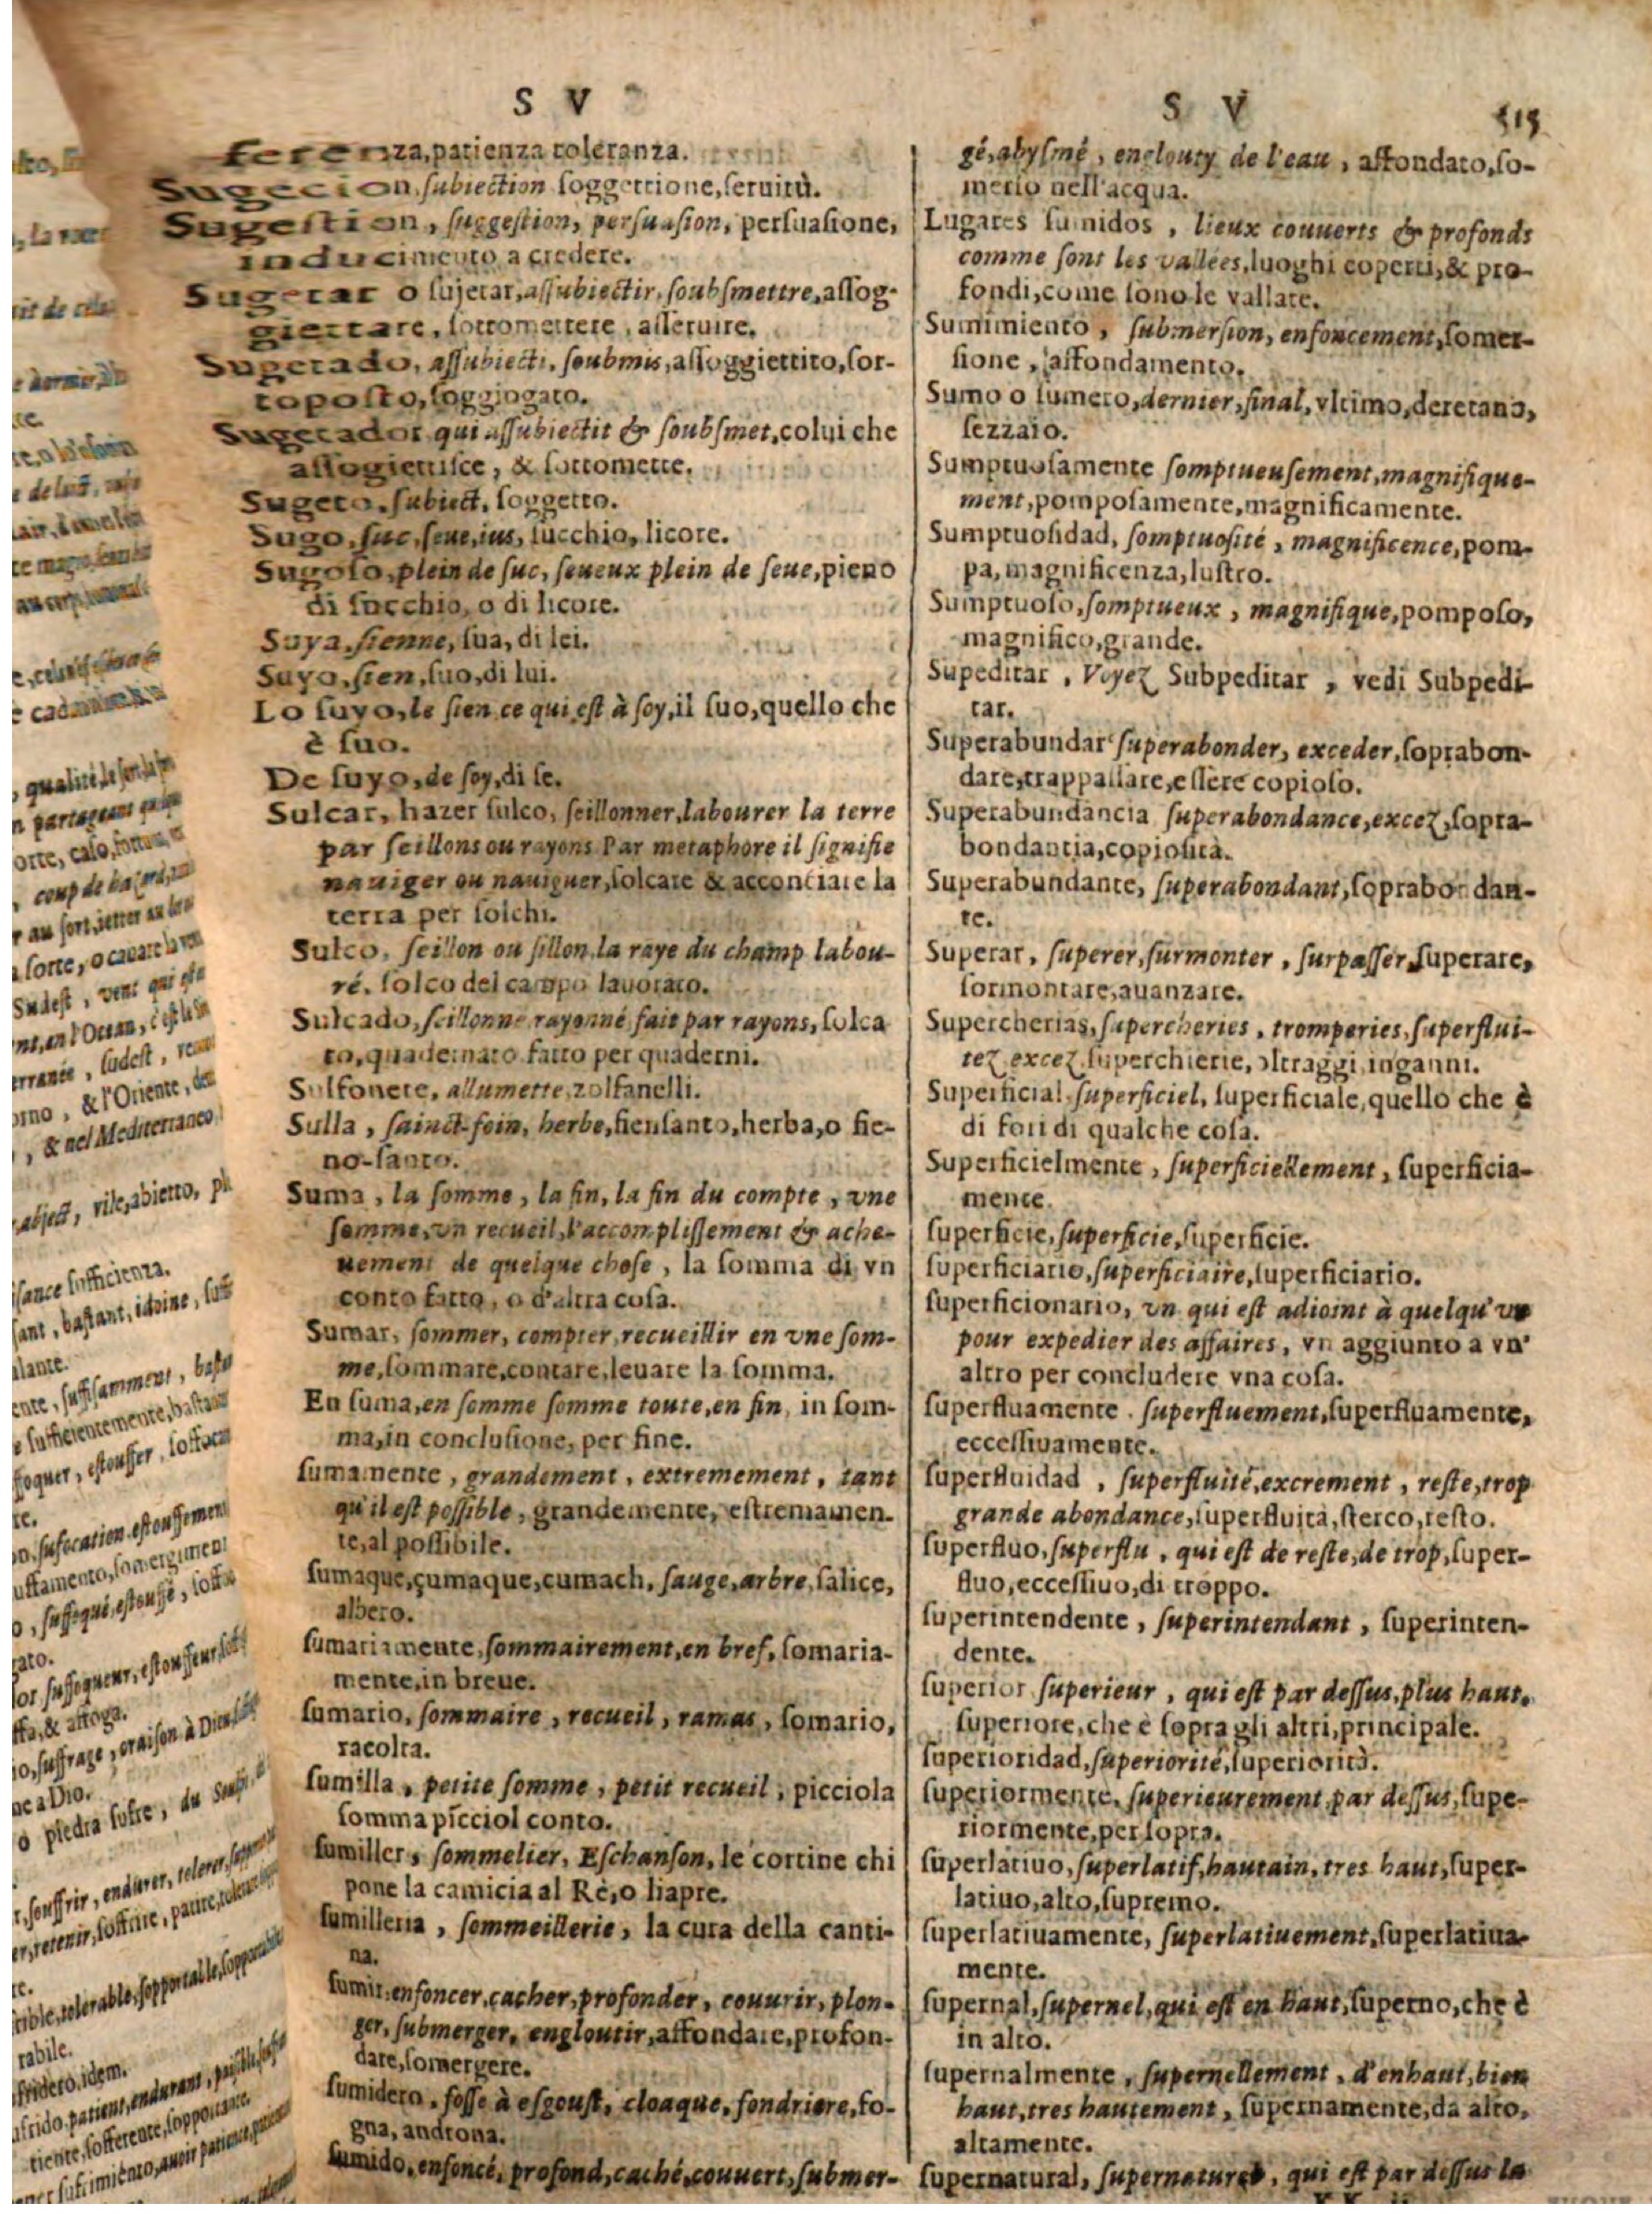 S V
ferenza,patienza toleranza.
Sugecion, ſubiection ſoggettione,ſeruitù.
Sugeſtion, ſuggeſtion, perſuaſion, perſuaſione,
inducimento a credere.
Sugetar o ſujetar,aſſubiectir, ſoubſmettre,aſſog-
giettare, ſottomettere, aſſeruire.
Sugetado, aſſubiecti, ſoubmis,aſſoggiettito,ſot-
topoſto,ſoggiogato.
Sugetador qui aſſubiectit & ſoubſmet,colui che
aſſogiettiſce, & ſottomette.
Sugeto, ſubiect, ſoggetto.
Sugo, ſuc, ſeue,ius, ſucchio, licore.
Sugoſo,plein de ſuc, ſeueux plein de ſeue,pieno
di ſucchio, o di licore.
Suya,ſienne, ſua, di lei.
Suyo,ſien,ſuo,di lui.
Lo ſuyo,le ſien ce qui eſt à ſoy,il ſuo,quello che
è ſuo.
De ſuyo,de ſoy,di ſe.
Sulcar, hazer ſulco, ſeillonner,labourer la terre
par ſeillons ou rayons Par metaphore il ſignifie
nauiger ou nauiguer,ſolcare & acconciare la
terra per ſolchi.
Sulco, ſeillon ou ſillon,la raye du champ labou-
ré, ſolco del campo lauorato.
Sulcado,ſeillonné rayonné fait par rayons, ſolca
to,quadernato fatto per quaderni.
Sulfonete, allumette,zolfanelli.
Sulla, ſainct-foin, herbe,fienſanto,herba,o fie-
no-ſanto.
Suma, la ſomme, la fin, la fin du compte, vne
ſomme,vn recueil,l'accompliſſement & ache-
uement de quelque choſe, la ſomma di vn
conto fatto, o d'altra coſa.
Sumar, ſommer, compter,recueillir en vne ſom-
me,ſommare,contare,leuare la ſomma.
En ſuma,en ſomme ſomme toute,en fin, in ſom-
ma,in concluſione, per fine.
ſumamente, grandement, extremement, tant
qu'il eſt poſſible, grandemente, eſtremamen-
te,al poſſibile.
ſumaque,çumaque,cumach, ſauge,arbre,ſalice,
albero.
ſumariamente,ſommairement,en bref, ſomaria-
mente,in breue.
ſumario, ſommaire, recueil, ramas, ſomario,
racolta.
ſumilla, petite ſomme, petit recueil, picciola
ſomma picciol conto.
ſumiller, ſommelier, Eſchanſon, le cortine chi
pone la camicia al Rè,o liapre.
ſumilleria, ſommeillerie, la cura della canti-
na.
ſumir,enfoncer,cacher,profonder, couurir, plon-
ger, ſubmerger, engloutir,affondare,profon-
dare,ſomergere.
ſumidero, foſſe à eſgouſt, cloaque, fondriere,fo-
gna, androna.
ſumido,enfoncé, profond,caché,couuert,ſubmer-
S V 515
gé,abyſmé, englouty de l'eau, affondato,ſo-
merſo nell'acqua.
Lugares ſumidos, lieux couuerts & profonds
comme ſont les vallées,luoghi coperti,& pro-
fondi,come ſono le vallate.
Sumimiento, ſubmerſion, enfoncement,ſomer-
ſione, affondamento.
Sumo o ſumero,dernier,final,vltimo,deretano,
ſezzaio.
Sumptuoſamente ſomptueuſement,magnifique-
ment,pompoſamente,magnificamente.
Sumptuoſidad, ſomptuoſité, magnificence,pom-
pa,magnificenza,luſtro.
Sumptuoſo,ſomptueux, magnifique,pompoſo,
magnifico,grande.
Supeditar, Voyez Subpeditar, vedi Subpedi-
tar.
Superabundar ſuperabonder, exceder,ſoprabon-
dare,trappaſſare,eſſere copioſo.
Superabundancia ſuperabondance,excez,ſopra-
bondantia,copioſità.
Superabundante, ſuperabondant,ſoprabondan-
te.
Superar, ſuperer,ſurmonter, ſurpaſſer,ſuperare,
ſormontare,auanzare.
Supercherias,ſupercheries, tromperies,ſuperflui-
tez excez,ſuperchierie,oltraggi,inganni.
Superficial,ſuperficiel, ſuperficiale,quello che è
di fori di qualche coſa.
Superficielmente, ſuperficiellement, ſuperficia-
mente.
ſuperficie,ſuperficie,ſuperficie.
ſuperficiario,ſuperficiaire,ſuperficiario.
ſuperficionario, vn qui eſt adioint à quelqu'vn
pour expedier des affaires, vn aggiunto a vn'
altro per concludere vna coſa.
ſuperfluamente, ſuperfluement,ſuperfluamente,
ecceſſiuamente.
ſuperfluidad, ſuperfluité,excrement, reſte,trop
grande abondance,ſuperfluità,ſterco,reſto.
ſuperfluo,ſuperflu, qui eſt de reſte,de trop,ſuper-
fluo,ecceſſiuo,di troppo.
ſuperintendente, ſuperintendant, ſuperinten-
dente.
ſuperior ſuperieur, qui eſt par deſſus,plus haut,
ſuperiore,che è ſopra gli altri,principale.
ſuperioridad,ſuperiorité,ſuperiorità.
ſuperiormente, ſuperieurement,par deſſus,ſupe-
riormente,per ſopra.
ſuperlatiuo,ſuperlatif,hautain,tres haut,ſuper-
latiuo,alto,ſupremo.
ſuperlatiuamente, ſuperlatiuement,ſuperlatiua-
mente.
ſupernal,ſupernel,qui eſt en haut,ſuperno,che è
in alto.
ſupernalmente, ſupernellement, d'enhaut,bien
haut,tres hautement, ſupernamente,da alto,
altamente.
ſupernatural, ſupernaturel, qui eſt par deſſus la